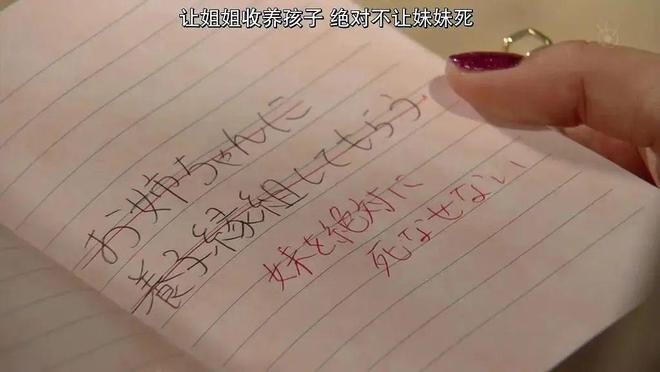 让姐姐收养孩子 绝对不让妹妹死
お姉ちゃんに
養子縁組してもらう
妹を絶対に
死なせない